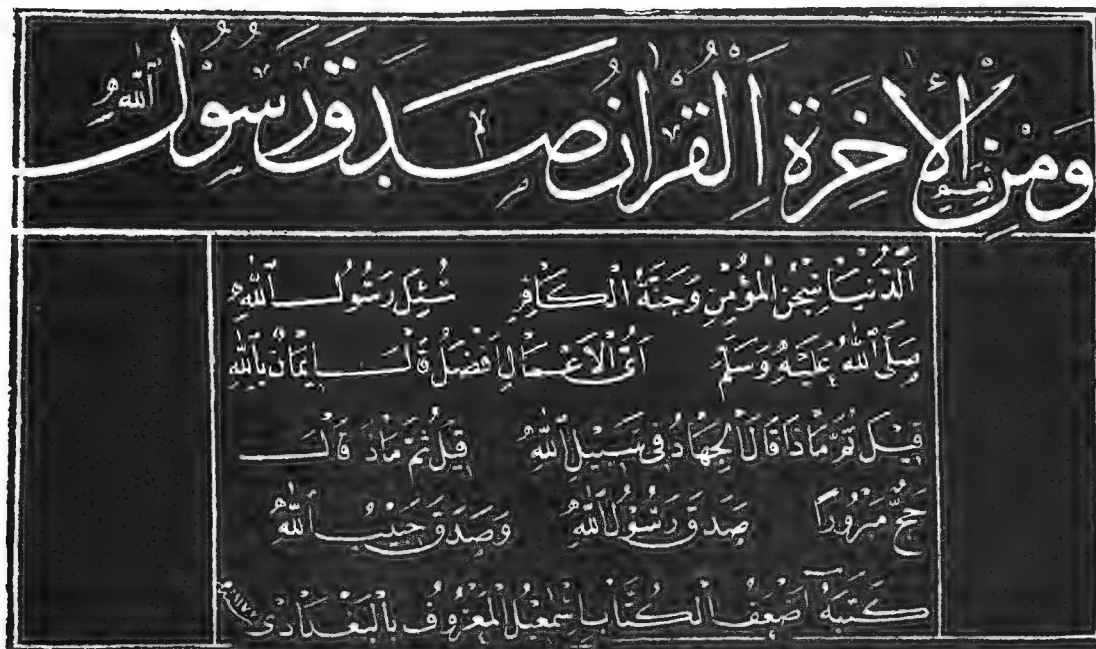 وَمِنْ نَعِيمِ الْآخِرَةِ الْقُرْآنُ صَدَقَ رَسُولُ اللّٰهِ
اَلدُّنْيَا سِجْنُ الْمُؤْمِنِ وَجَنَّةُ الْكَافِرِ سُئِلَ رَسُولُ اللّٰهِ
صَلَّى اللّٰهُ عَلَيْهِ وَسَلَّمَ اَىُّ الْاَعْمَالِ اَفْضَلُ قَالَ اِيمَانٌ بِاللّٰهِ
قِيلَ ثُمَّ مَاذَا قَالَ الْجِهَادُ فِى سَبِيلِ اللّٰهِ قِيلَ ثُمَّ مَاذَ قَالَ
حَجٌّ مَبْرُورًا صَدَقَ رَسُولُ اللّٰهِ وَصَدَقَ حَبِيبُ اللّٰهِ
كَتَبَهُ اَضْعَفُ الْكُتَّابِ اِسْمٰعِيلُ الْمَعْرُوفُ بِالْبَغْدَادِى